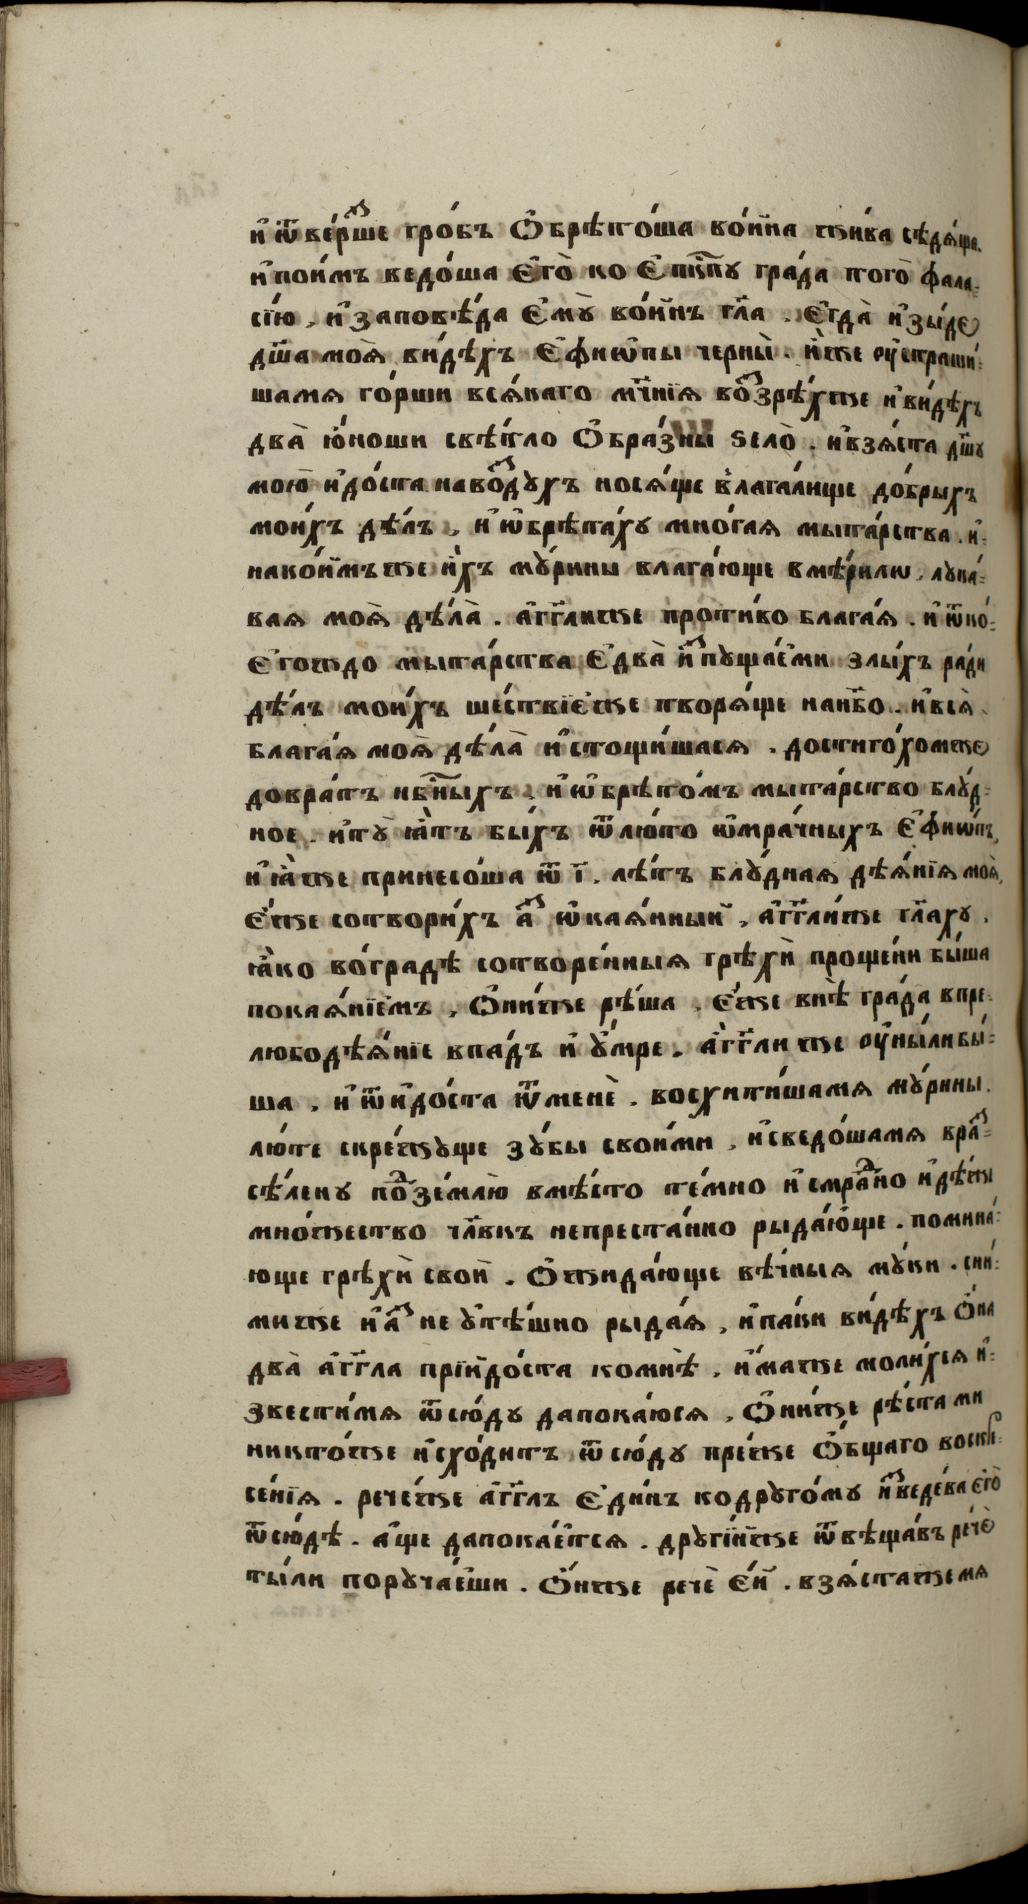 и҆ ѿве́рⷥше гро́бъ Ѻ҆брѣто́ша во́ина жи́ва сѣдѧ́ще.
и҆ пои́мъ ведо́ша Е҆го̀ ко Е҆пⷭ҇кпу гра́да того̀ фала-
сі́ю, и҆ заповѣ́да Е҆мꙋ̀ во́инъ гл҃ѧ. Е҆гда̀ и҆зы́де
дш҃а моѧ̀ ви́дѣхъ Е҆фиѡ́пы черны̀. и҆́же оу҆страши́-
шамѧ го́рши всѧ́каго мч҃нїѧ воⷥзрѣ́хже и҆ ви́дѣхъ
два̀ ю҆́ноши свѣ́тло Ѻ҆бра́зны ѕело̀. и҆ взѧ́ста дш҃у
мою̀ и҆до́ста на воⷥдухъ носѧ́ще влагали́ще до́брыхъ
мои́хъ дѣ́лъ, и҆ ѡ҆брѣта́ху мно́гаѧ мыта́рства. и҆-
на ко́имъже и҆́хъ му́рины влага́юще в мѣ́рилѡ, лука́-
ваѧ моѧ̀ дѣ́ла̀. а҆́гг҃лиже проти́во блага́ѧ. и҆ ѿ ко́-
Е҆гождо мыта́рства Е҆два̀ и҆ⷥпуща́еми злы́хъ ра́ди
дѣ́лъ мои́хъ ше́ствїеже творѧ́ще на нб҃о. и҆ всѧ̀
блага́ѧ моѧ̀ дѣ́ла̀ и҆стощи́шасѧ. достиго́хомже
до вра́тъ нбⷭ҇ныхъ, и҆ ѡ҆брѣто́мъ мыта́рство блу́д-
ное. и҆ ту̀ ꙗ҆́тъ бы́хъ ѿ лю́то ѡ҆мра́чныхъ Е҆фиѡ́пъ,
и҆ ꙗ҆́же принесо́ша ѿ і҃. лѣ́тъ блу́днаѧ дѣѧ́нїѧ моѧ̀,
Е҆́же сотвори́хъ а҆ⷥ ѡ҆каѧ́нный, а҆́гг҃лиже гл҃аху.
ꙗ҆́ко во гра́дѣ сотворе́нныѧ грѣхѝ проще́ни бы́ша
покаѧ́нїемъ, Ѻ҆ни́же рѣ́ша, Е҆́же внѣ̀ гра́да в пре-
любодѣѧ́нїе впа́дъ и҆ у҆́мре. а҆́гг҃ли же оу҆ны́ли бы́-
ша, и҆ ѿи҆до́ста ѿ менѐ. восхити́шамѧ му́рины.
лю́те скре́жуще зу́бы свои́ми, и҆ сведо́шамѧ враⷥ-
сѣ́лену поⷣзе́млю в мѣ́сто те́мно и҆ смраⷣно и҆дѣ́же
мно́жество чл҃вкъ непреста́нно рыда́юще. помина́-
юще грѣхѝ своѝ. Ѻ҆жида́юще вѣ́чныѧ му́ки. сни́-
миже и҆ а҆ⷥ не у҆тѣ́шно рыда́ѧ, и҆ па́ки ви́дѣхъ Ѻ҆́на
два̀ а҆́гг҃ла прїидо́ста ко мнѣ̀, и҆́маже моли́хсѧ и҆-
звести́мѧ ѿсю́ду да пока́юсѧ, Ѻ҆ни́же рѣ́ста ми
никто́же и҆схо́дитъ ѿсю́ду пре́же Ѻ҆́бщаго воскр-
се́нїѧ. рече́же а҆́гг҃лъ Е҆ди́нъ ко друго́му и҆ⷥведе́ва е҆го̀
ѿсю́дѣ. а҆́ще да пока́етсѧ. другі́йже ѿвѣща́въ речѐ
ты́ ли поруча́еши. Ѻ҆́нже речѐ Е҆́й. взѧ́стажемѧ